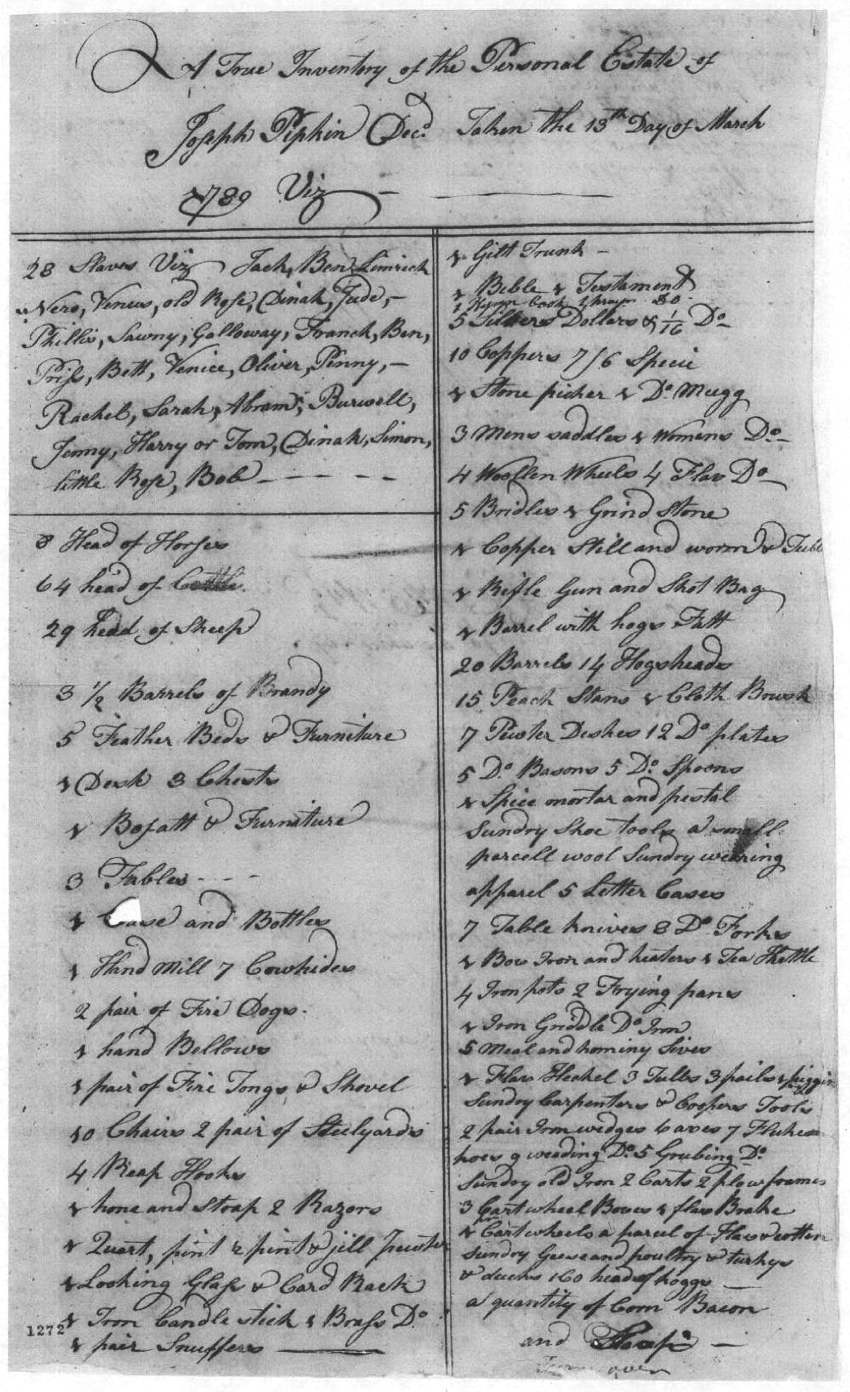 A True Inventory of the Personal Estate of
Joseph Pipkin Decd. Taken the 13th Day of March
1789 Viz
28 Slaves Viz Jack, Ben Limrick
Nero, Venus, old Rose, Dinah, Jude,
Phillis, Sawny, Galloway, Franck, Ben,
Priss, Bett, Venice, Oliver, Penny,
Rachel, Sarah, Abram, Burwell,
Jenny, Harry or Tom, Dinah, Simon,
little Rose, Bob
8 Head of Horses
64 head of Cattle
29 head of Sheep
3 1/2 Barrels of Brandy
5 Feather Beds & Furniture
1 Desk 3 Chests
1 Bofatt & Furniture
3 Tables
1 Case and Bottles
1 Hand Mill 7 Cowhides
2 pair of Fire Dogs
1 hand Bellows
1 pair of Fire Tongs & Shovel
10 Chairs 2 pair of Steelyards
4 Reap Hooks
1 hone and Strap 2 Razors
1 Quart, pint 1/2 pint & jill Pewter
1 Looking Glass & Card Rack
1 Iron Candle stick 1 Brass Do.
1 pair Snuffers
1272
1 Gilt Trunk
1 Bible 1 Testament
1 Hymn book 1 prayr Do.
5 Silver Dollars & 1/16 Do
10 Coppers 7/6 Specie
1 Stone picher 1 Do. Mugg
3 Mens saddles 1 Womens Do
4 Woollen Wheels 4 Flax Do
5 Bridles 1 Grind Stone
1 Copper Still and worm & Tubb
1 Rifle Gun and Shot Bag
1 Barrel with hogs Fatt
20 Barrels 14 Hogsheads
15 Peach Stans 1 Cloth
7 Pewter Deshes 12 Do plates
5 Do Basons 5 Do. Spoons
1 Spice mortar and pestal
Sundry Shoe tools a small
parcell wool Sundry wearing
apparel 5 Letter Cases
7 Table knives 8 Do Forks
1 Box Iron and heaters 1 Tea Kettle
4 Iron pots 2 Frying pans
1 Iron Griddle Do Iron
5 Meal and hominy Sives
1 Flax Heckel 3 Tubbs 3 pails 1 piggin
Sundry Carpenters & Coopers Tools
2 pair Iron wedges 6 axes 7
hoes 9 weading Do. 5 Grubing Do.
Sundry old Iron 2 Carts 2 plow frames
3 Cart wheel Boxes 1 flax Brake
1 Cart wheels a parcel of Flax & cotton
Sundry Geese and poultry & turkys
& ducks 160 head of hoggs
a quantity of Corn Bacon
and
Turn over